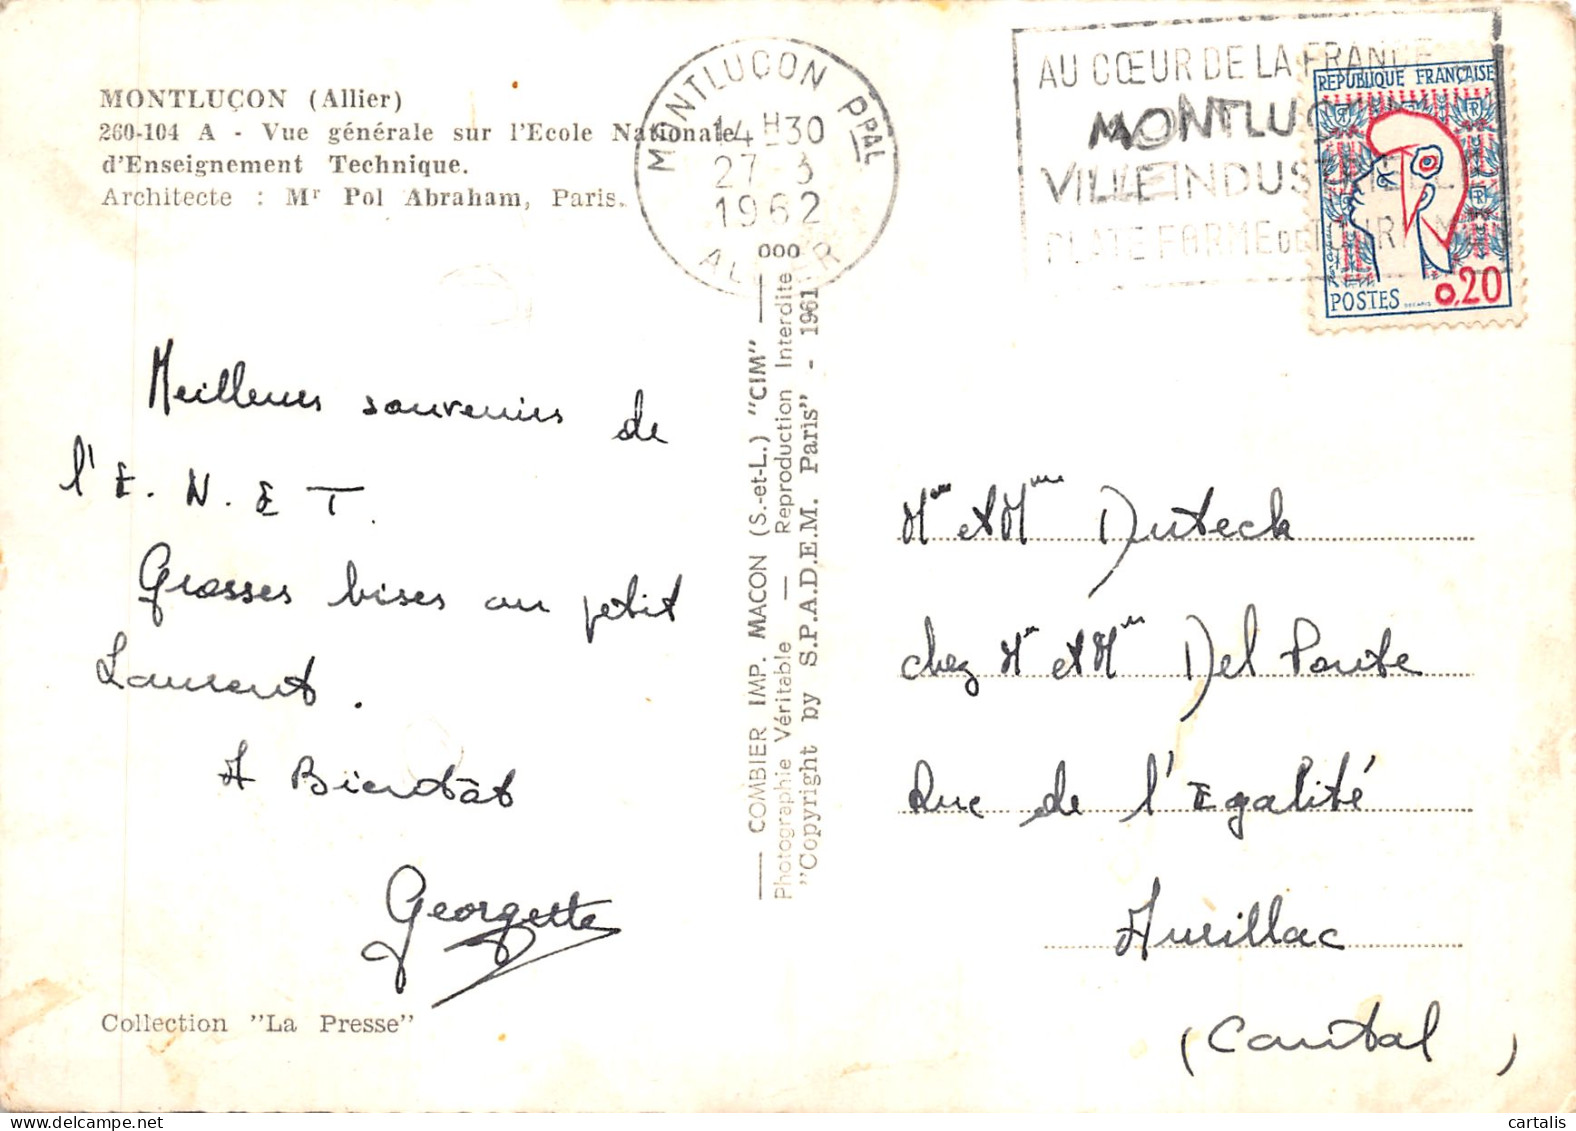 MONTLUÇON (Allier)
260-104 A - Vue générale sur l'Ecole Nationale
d'Enseignement Technique.
Architecte : Mr Pol Abraham, Paris.
MONTLUÇON PPAL
14H30
27-3
1962
ALLIER
AU CŒUR DE LA FRANCE
MONTLUÇON
VILLE INDUSTRIELLE
PLATE FORME DE TOURISME
REPUBLIQUE FRANÇAISE
POSTES 0,20
Meilleurs souvenirs de
l'E.N.E T.
Grosses bises au petit
Laurent.
A Bientôt
Georgette
Collection "La Presse"
COMBIER IMP. MACON (S.-et-L.) "CIM"
Photographie Véritable — Reproduction Interdite
"Copyright by S.P.A.D.E.M. Paris" - 1961
Mr et Mme Duteck
chez Mr et Mme Del Ponte
Rue de l'Egalité
Aurillac
(Cantal)
delcampe.net
cartalis